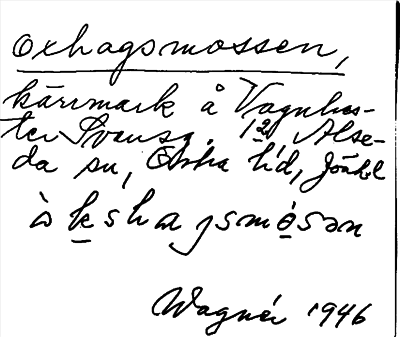 Oxhagsmossen,
kärrmark å Vagnhes-
ter Svensg. 1/2, Alse-
da sn, Östra hd, Jönk. l
Wagnér 1946